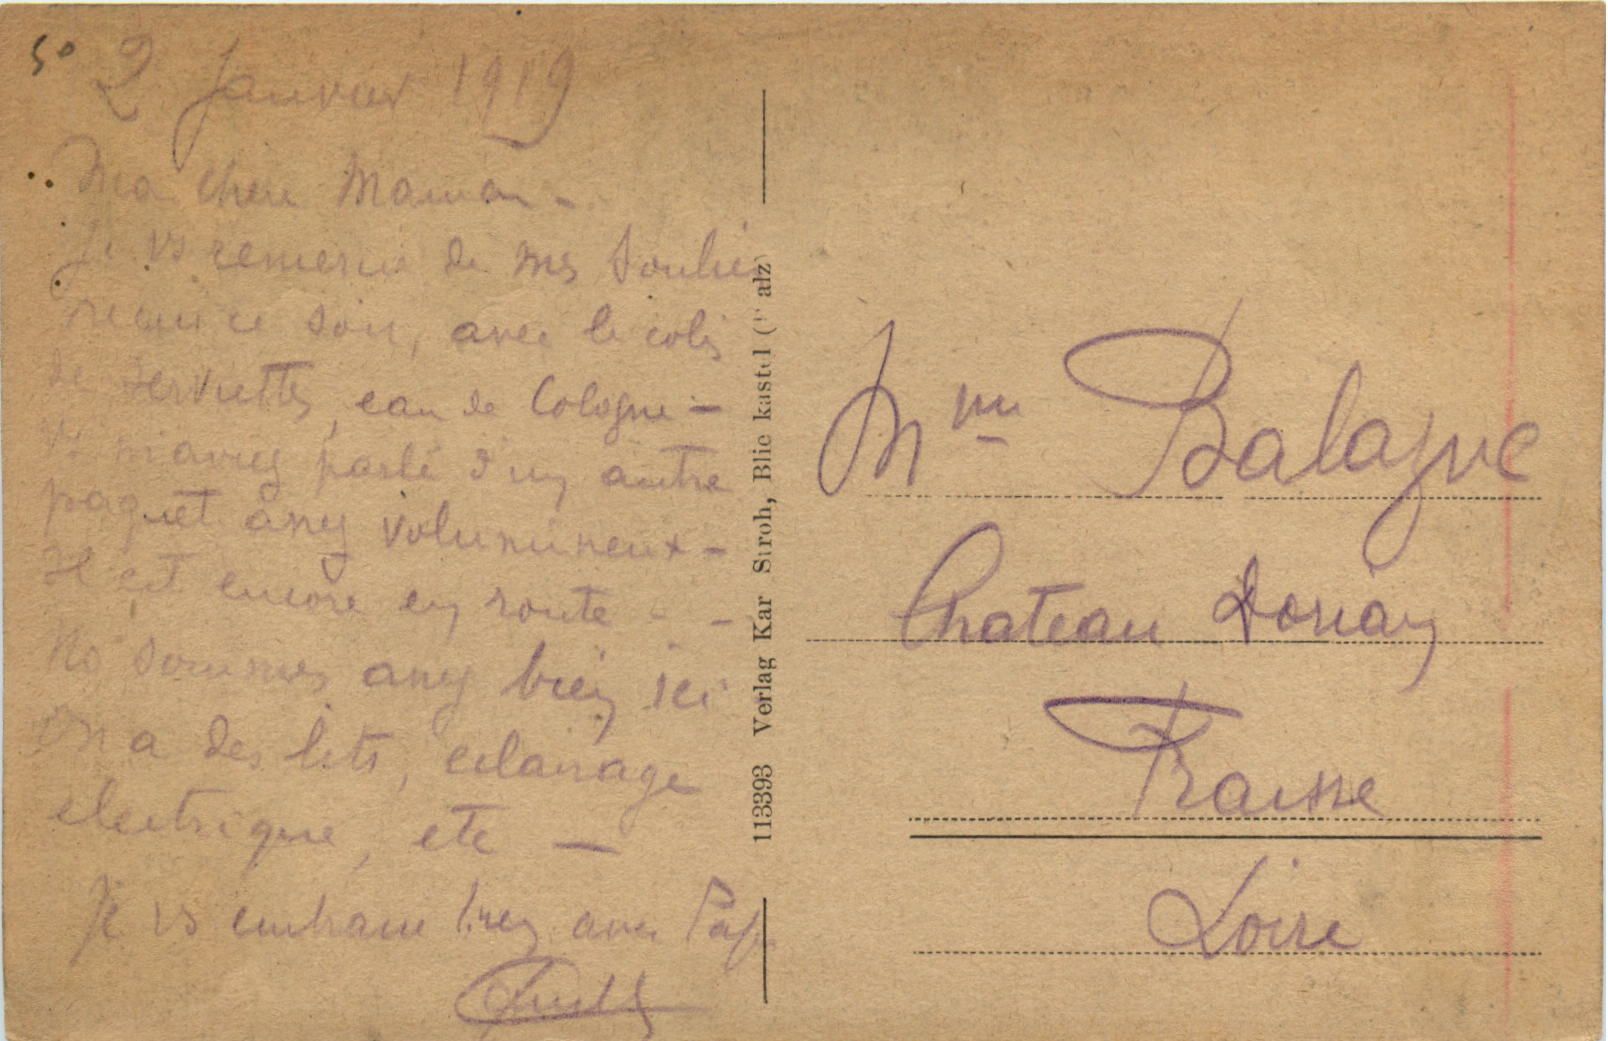 50
2 Janvier 1919
Ma chère Maman -
Je vs remercie de mes souliers
reçus ce soir, avec le colis
de serviettes, eau de Cologne -
Vs m'aviez parlé d'un autre
paquet assez volumineux -
Il est encore en route - -
Ns sommes assez bien ici
On a des lits, eclairage
électrique, etc -
Je vs embrasse bien avec Papa
113393 Verlag Kar Stroh, Blie kastel (P alz)
Mme Balague
Chateau Dorian
Fraisse
Loire